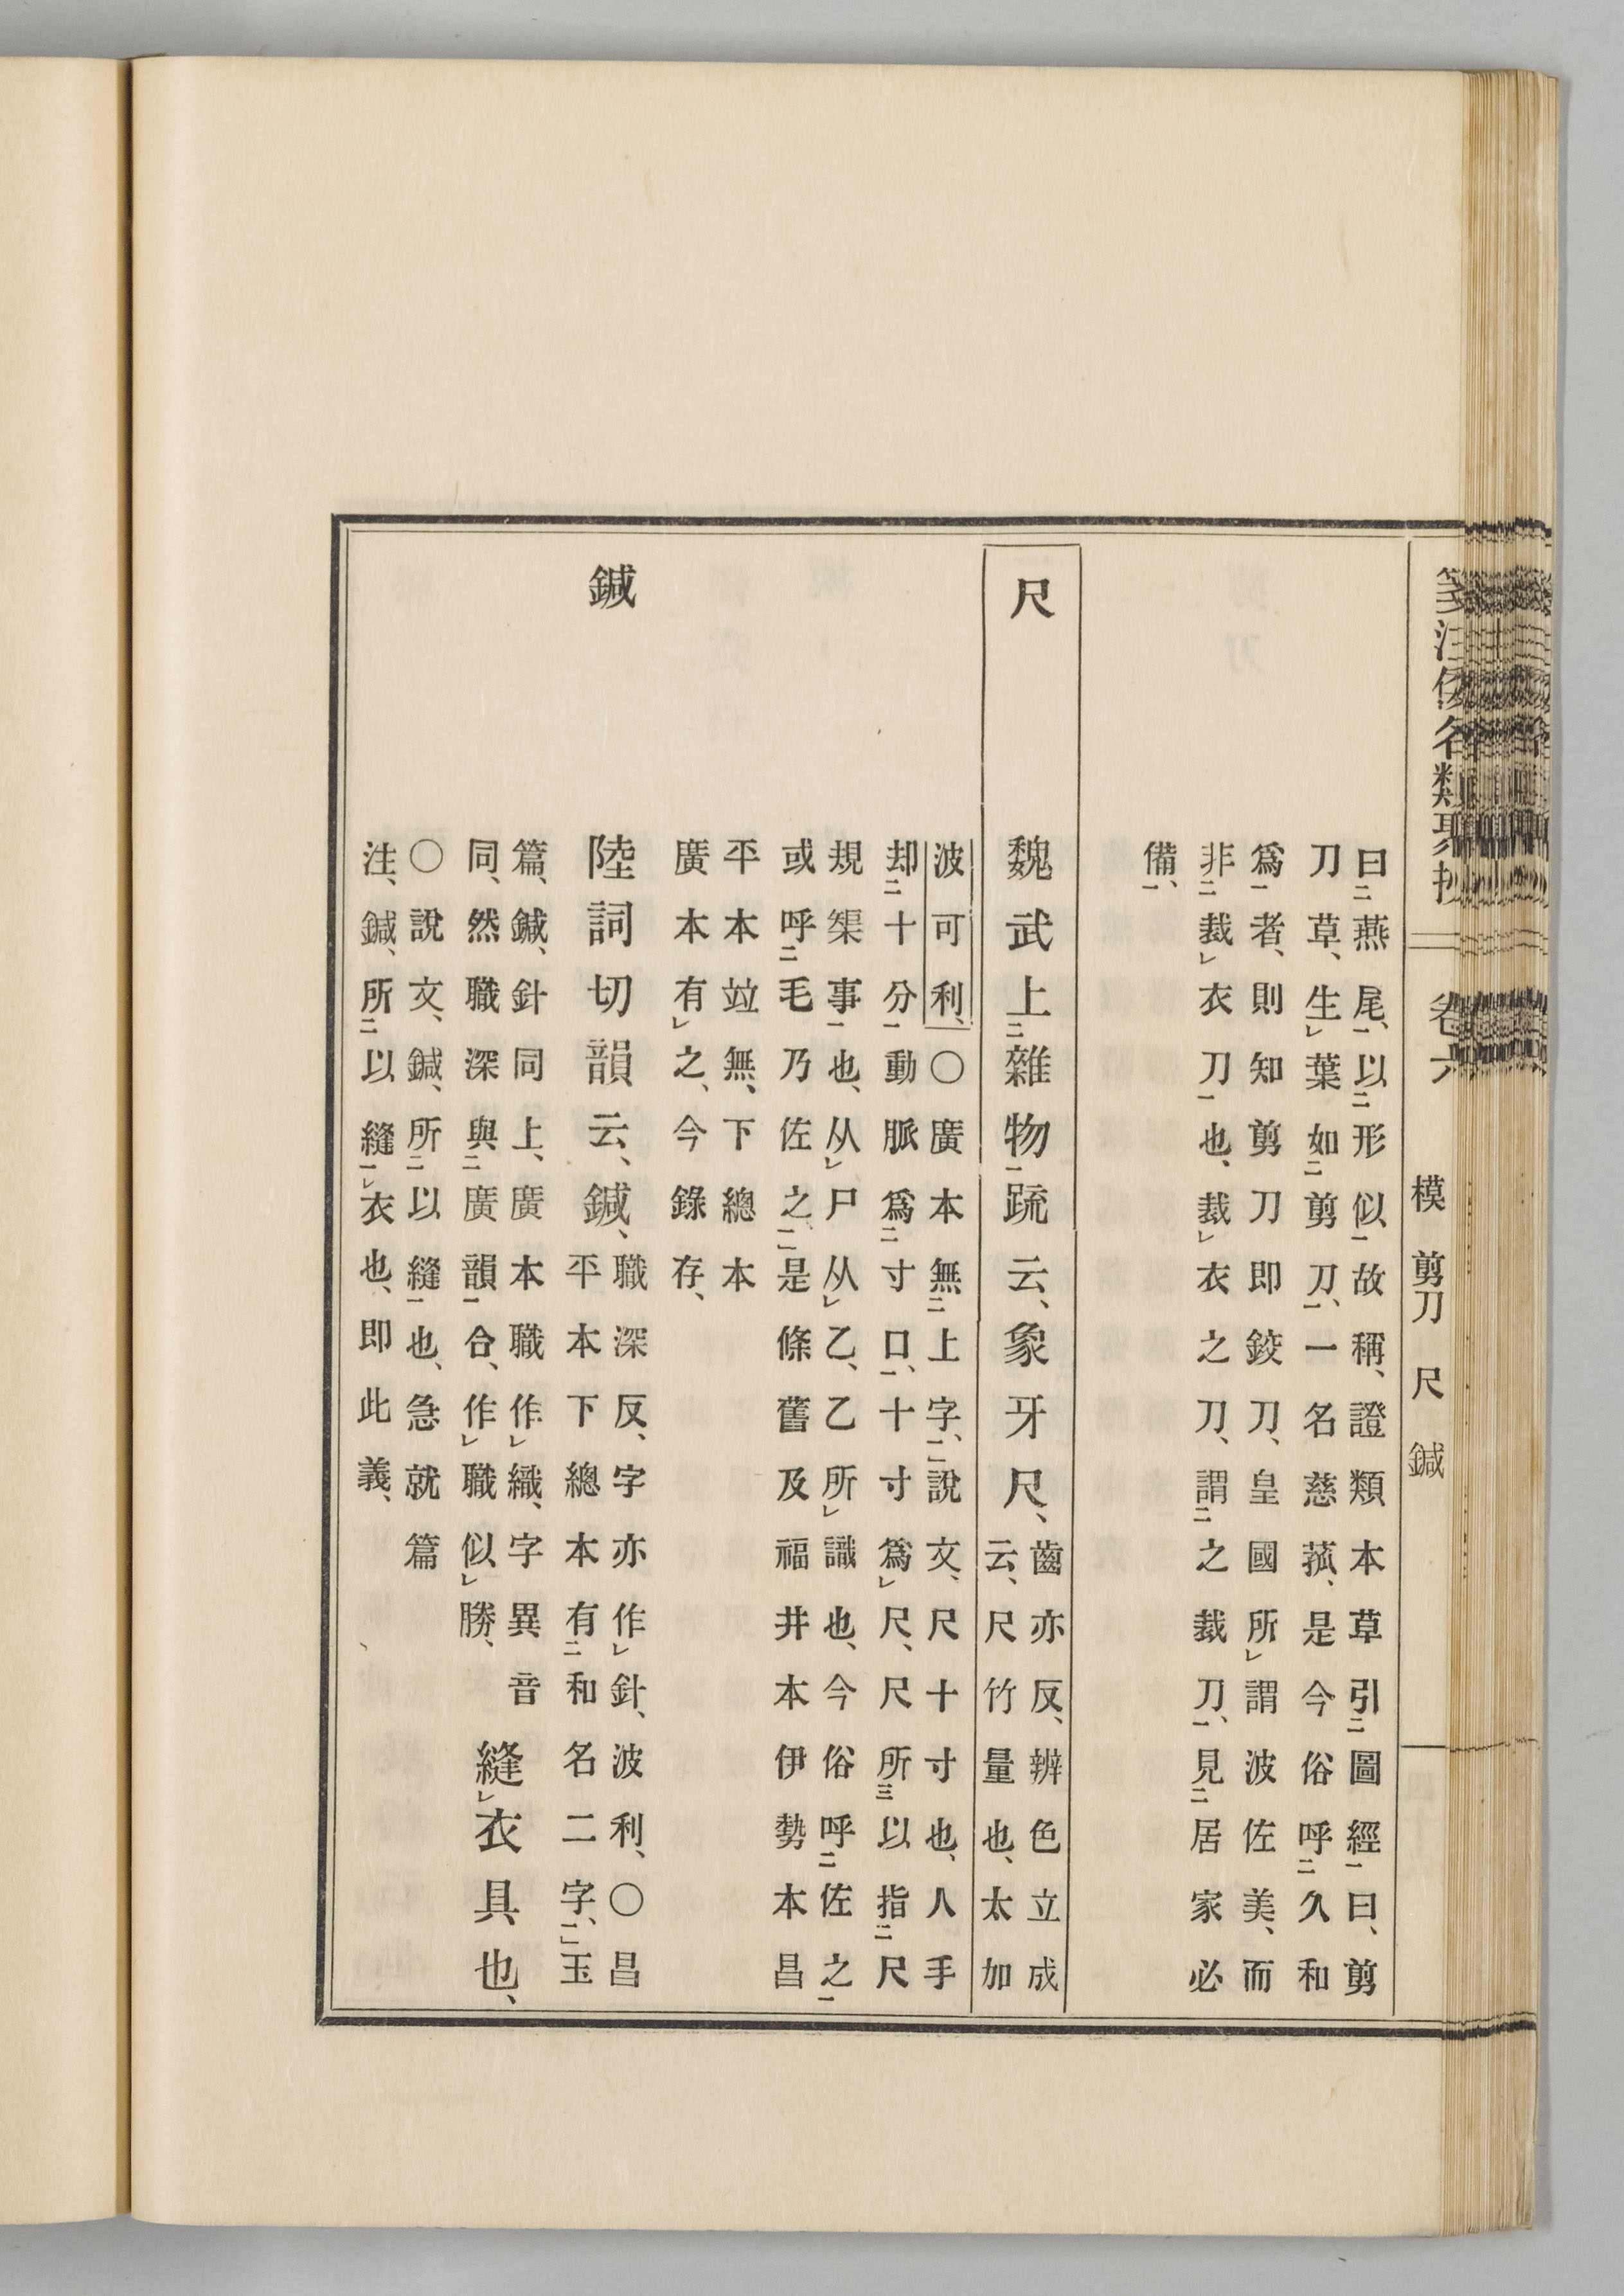 箋注倭名類聚抄 卷六 模 剪刀 尺 鍼
曰二燕尾一、以二形似一故稱、證類本草引二圖經一曰、剪
刀草、生レ葉如二剪刀一、一名慈菰、是今俗呼二久和
爲一者、則知剪刀即鉸刀、皇國所レ謂波佐美、而
非二裁レ衣刀一也、裁レ衣之刀、謂二之裁刀一、見二居家必
備一、
尺 魏武上二雜物一疏云、象牙尺、齒亦反、辨色立成
云、尺竹量也、太加
波可利、〇廣本無二上字一、說文、尺十寸也、人手
却二十分一動脈爲二寸口一、十寸爲レ尺、尺所三以指二尺
規榘事一也、从レ尸从レ乙、乙所レ識也、今俗呼二佐之一
或呼二毛乃佐之一、是條舊及福井本伊勢本昌
平本竝無、下總本
廣本有レ之、今錄存、
鍼 陸詞切韻云、鍼、職深反、字亦作レ針、波利、〇昌
平本下總本有二和名二字一、玉
篇、鍼、針同上、廣本職作レ織、字異音
同、然職深與二廣韻一合、作レ職似レ勝、
縫レ衣具也、
〇說文、鍼、所二以縫一也、急就篇
注、鍼、所二以縫一レ衣也、即此義、